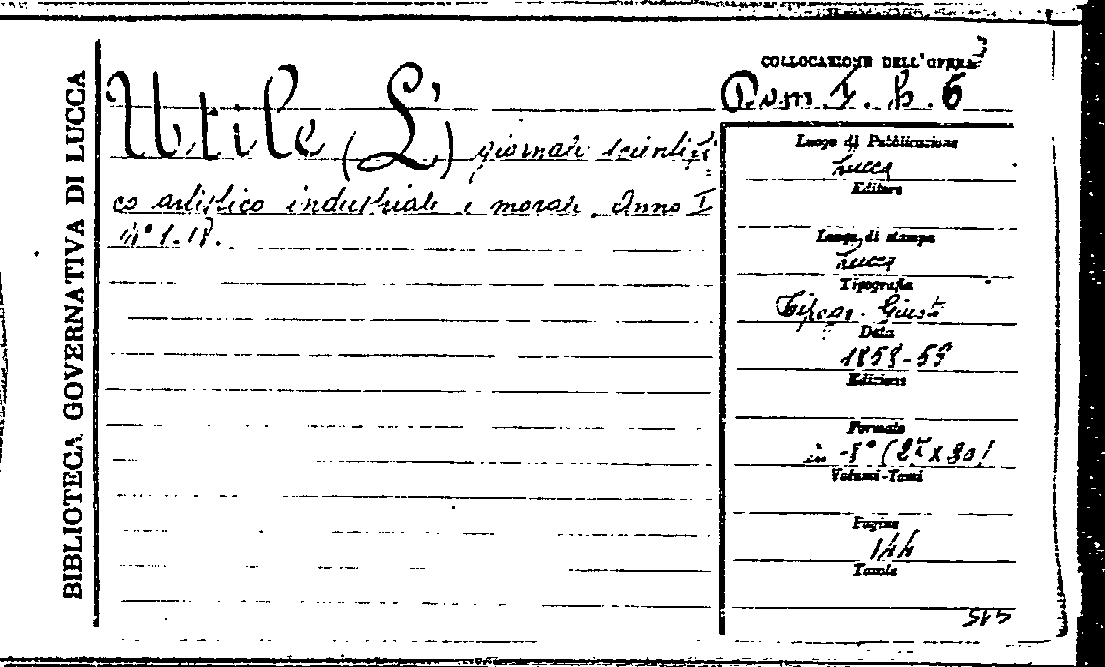 BIBLIOTECA GOVERNATIVA DI LUCCA
Utile (L') giornale scientifi
co artistico industriale e morale. Anno I
N° 1.18.
COLLOCAZIONE DELL'OPERA
b. 6
Luogo di Pubblicazione
Lucca
Editore
Luogo di stampa
Lucca
Tipografia
Tipogr. Giusti
Data
1858-59
Edizione
Formato
in -8° (21 x 30)
Volumi-Tomi
Pagine
144
Tavole
415